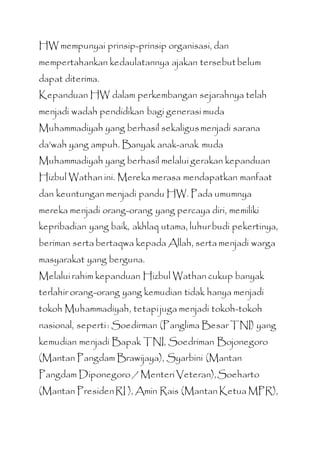 HW mempunyai prinsip-prinsip organisasi, dan
mempertahankan kedaulatannya ajakan tersebut belum
dapat diterima.
Kepanduan HW dalam perkembangan sejarahnya telah
menjadi wadah pendidikan bagi generasi muda
Muhammadiyah yang berhasil sekaligus menjadi sarana
da'wah yang ampuh. Banyak anak-anak muda
Muhammadiyah yang berhasil melalui gerakan kepanduan
Hizbul Wathan ini. Mereka merasa mendapatkan manfaat
dan keuntungan menjadi pandu HW. Pada umumnya
mereka menjadi orang-orang yang percaya diri, memiliki
kepribadian yang baik, akhlaq utama, luhur budi pekertinya,
beriman serta bertaqwa kepada Allah, serta menjadi warga
masyarakat yang berguna.
Melalui rahim kepanduan Hizbul Wathan cukup banyak
terlahir orang-orang yang kemudian tidak hanya menjadi
tokoh Muhammadiyah, tetapi juga menjadi tokoh-tokoh
nasional, seperti : Soedirman (Panglima Besar TNI) yang
kemudian menjadi Bapak TNI, Soedriman Bojonegoro
(Mantan Pangdam Brawijaya), Syarbini (Mantan
Pangdam Diponegoro / Menteri Veteran), Soeharto
(Mantan Presiden RI ), Amin Rais (Mantan Ketua MPR),